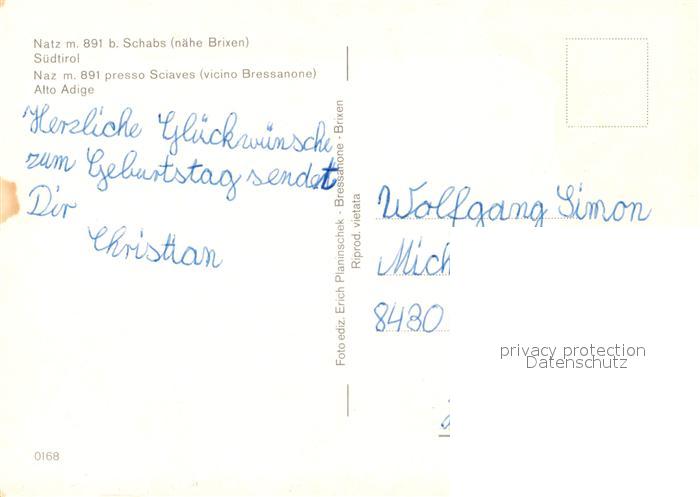 Natz m. 891 b. Schabs (nähe Brixen)
Südtirol
Naz m. 891 presso Sciaves (vicino Bressanone)
Alto Adige
Herzliche Glückwünsche
zum Geburtstag sendet
Dir
Christian
Foto ediz. Erich Planinschek - Bressanone - Brixen
Riprod. vietata
Wolfgang Simon
Mich
8430
privacy protection
Datenschutz
0168